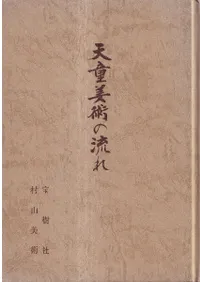 天童美術の流れ
宝樹社
村山美術